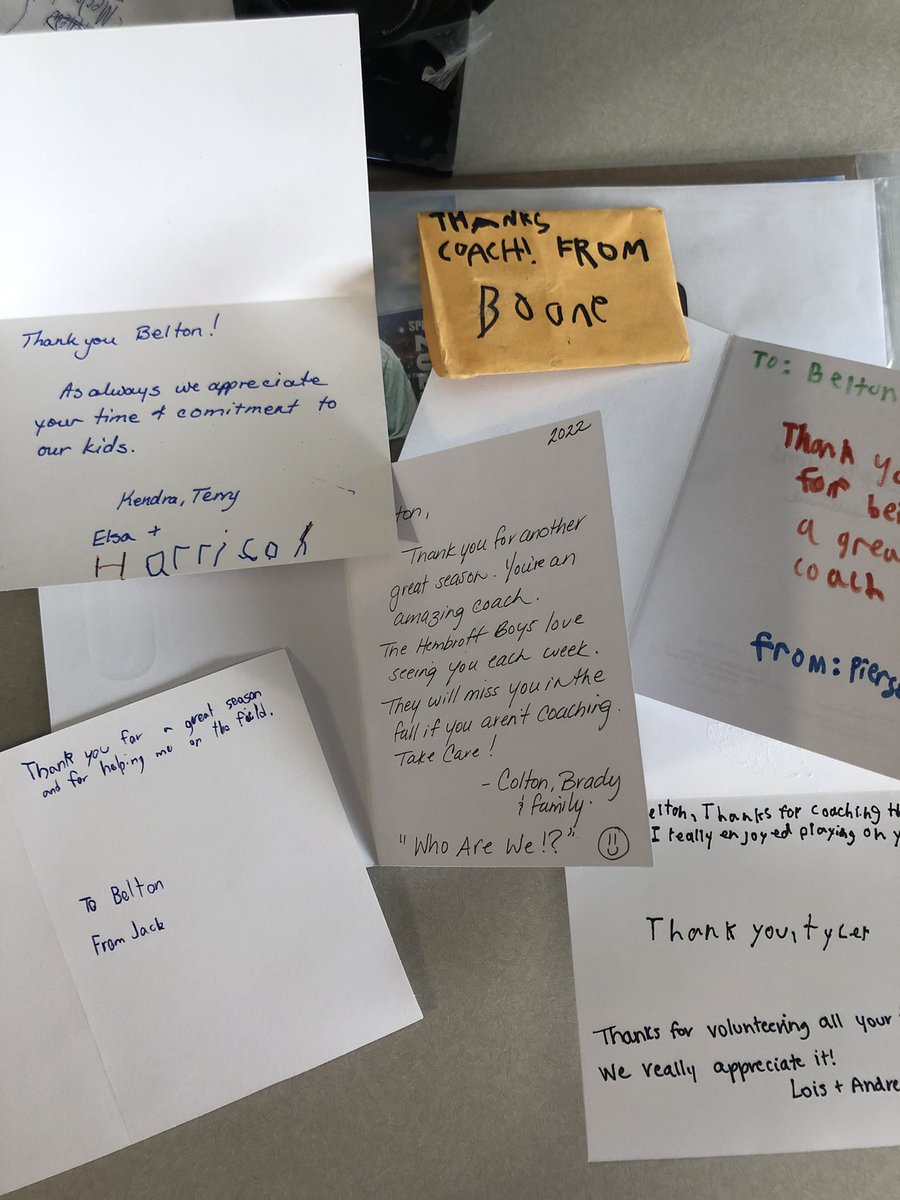 Thank you Belton!
As always we appreciate
your time + comitment to
our kids.
Kendra, Terry
Elsa +
Harrison
THANKS
COACH! FROM
Boone
SP
20
To: Belton
Thank yo
for bei
a grea
coach
from: Pierso
2022
ton,
Thank you for another
great season. You're an
amazing coach.
The Hembroff Boys love
seeing you each week.
They will miss you in the
fall if you aren't coaching.
Take Care!
- Colton, Brady
& family.
"Who Are We!?"
Thank you for a great season
and for helping me on the field.
To Belton
From Jack
elton, Thanks for coaching th
I really enjoyed playing on y
Thank you, tyler
Thanks for volunteering all your
We really appreciate it!
Lois + Andre